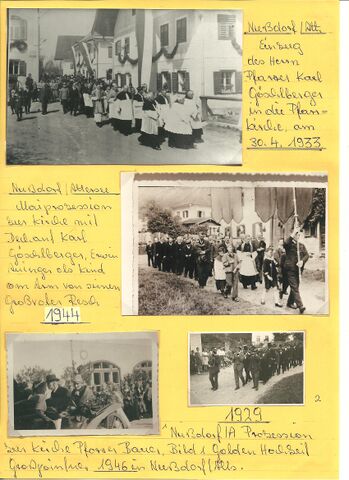 Nußdorf/Attg.
Einzug
des Herrn
Pfarrer Karl
Göschlberger
in die Pfarr-
kirche, am
30.4.1933
Nußdorf/Attersee
Maiprozession
zur Kirche mit
Karl
Göschlberger, Erwin
als Kind
am Arm von seinen
Großvater Resch
1944
1929
2
Nußdorf/A Prozession
zur Kirche Pfarrer Bauer, Bild 1 Golden Hochzeit
1946 in Nußdorf/Atts.